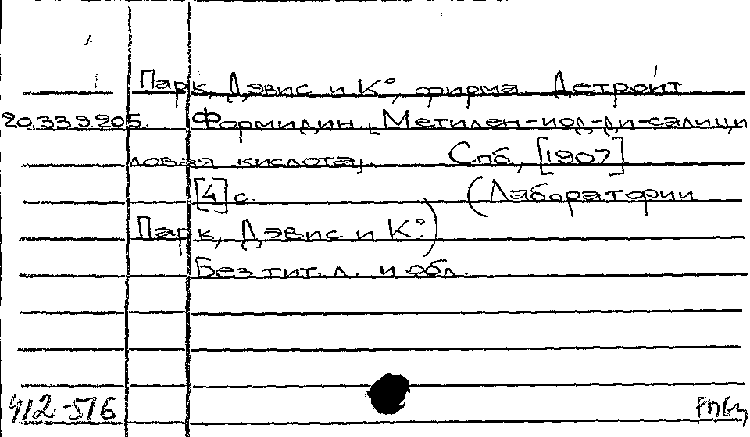 Парк, Дэвис и К°, фирма. Детройт
20.33.9.205. Формидин [Метилен-иод-ди-салици
ловая кислота]. Спб, [1907]
[4] с. (Лаборатории
Парк, Дэвис и К°)
Без тит. л. и обл.
412-516